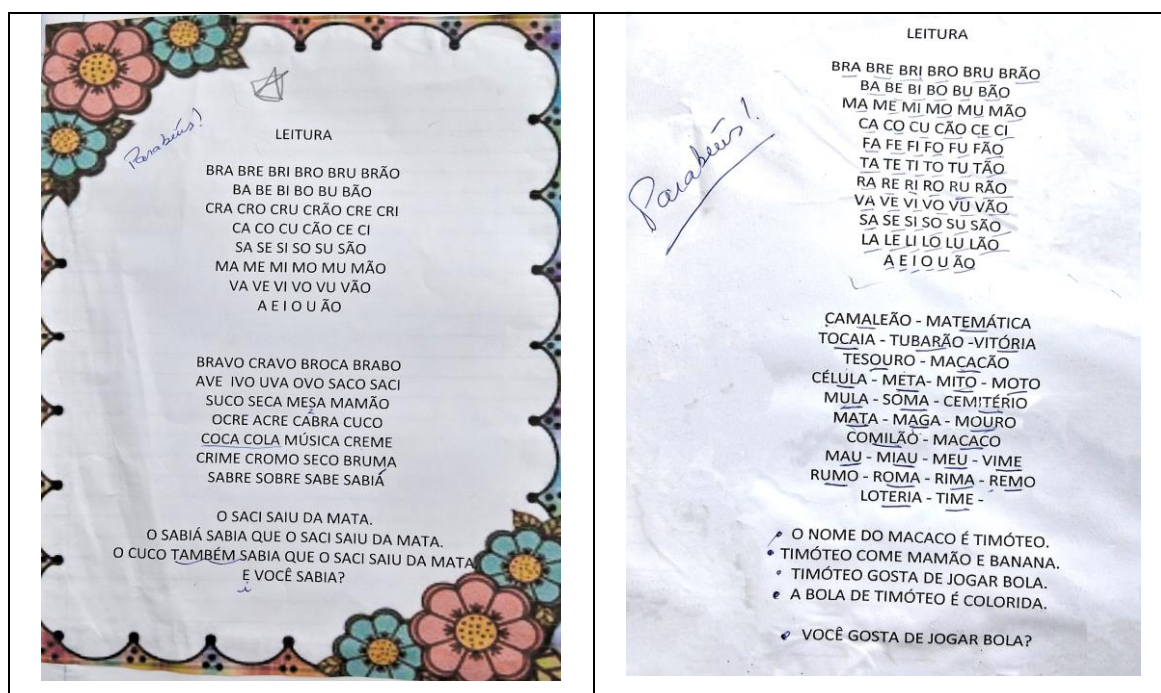 Parabéns!
LEITURA
BRA BRE BRI BRO BRU BRÃO
BA BE BI BO BU BÃO
CRA CRO CRU CRÃO CRE CRI
CA CO CU CÃO CE CI
SA SE SI SO SU SÃO
MA ME MI MO MU MÃO
VA VE VI VO VU VÃO
A E I O U ÃO
BRAVO CRAVO BROCA BRABO
AVE IVO UVA OVO SACO SACI
SUCO SECA MESA MAMÃO
OCRE ACRE CABRA CUCO
COCA COLA MÚSICA CREME
CRIME CROMO SECO BRUMA
SABRE SOBRE SABE SABIÁ
O SACI SAIU DA MATA.
O SABIÁ SABIA QUE O SACI SAIU DA MATA.
O CUCO TAMBÉM SABIA QUE O SACI SAIU DA MATA
E VOCÊ SABIA?
i
LEITURA
BRA BRE BRI BRO BRU BRÃO
BA BE BI BO BU BÃO
MA ME MI MO MU MÃO
CA CO CU CÃO CE CI
FA FE FI FO FU FÃO
TA TE TI TO TU TÃO
RA RE RI RO RU RÃO
VA VE VI VO VU VÃO
SA SE SI SO SU SÃO
LA LE LI LO LU LÃO
A E I O U ÃO
Parabéns!
CAMALEÃO - MATEMÁTICA
TOCAIA - TUBARÃO -VITÓRIA
TESOURO - MACACÃO
CÉLULA - META- MITO - MOTO
MULA - SOMA - CEMITÉRIO
MATA - MAGA - MOURO
COMILÃO - MACACO
MAU - MIAU - MEU - VIME
RUMO - ROMA - RIMA - REMO
LOTERIA - TIME -
O NOME DO MACACO É TIMÓTEO.
TIMÓTEO COME MAMÃO E BANANA.
TIMÓTEO GOSTA DE JOGAR BOLA.
A BOLA DE TIMÓTEO É COLORIDA.
VOCÊ GOSTA DE JOGAR BOLA?